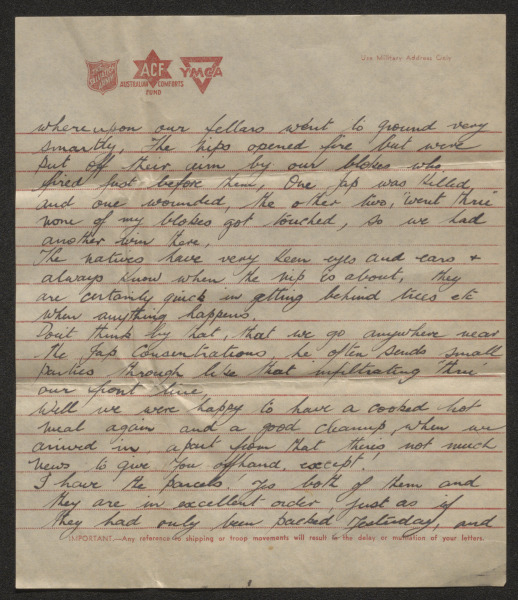 THE SALVATION ARMY
ACF
AUSTRALIAN COMFORTS
FUND
YMCA
Use Military Address Only
whereupon our fellars went to ground very
smartly, The nips opened fire but were
put off their aim by our blokes who
fired just before them, One Jap was killed
and one wounded, the other two, "went thru"
none of my blokes got touched, so we had
another win there,
The natives have very keen eyes and ears +
always know when the nip is about, they
are certainly quick in getting behind trees etc
when anything happens.
Don't think by that, that we go anywhere near
the Jap Consentrations, he often sends small
parties through like that infiltrating thru'
our front line,
Well we were happy to have a cooked hot
meal again and a good cleanup, when we
arrived in, apart from that theres not much
news to give you offhand, except.
I have the parcels! Yes both of them and
they are in excellent order, just as if
they had only been packed yesterday, and
IMPORTANT.—Any reference to shipping or troop movements will result in the delay or mutilation of your letters.